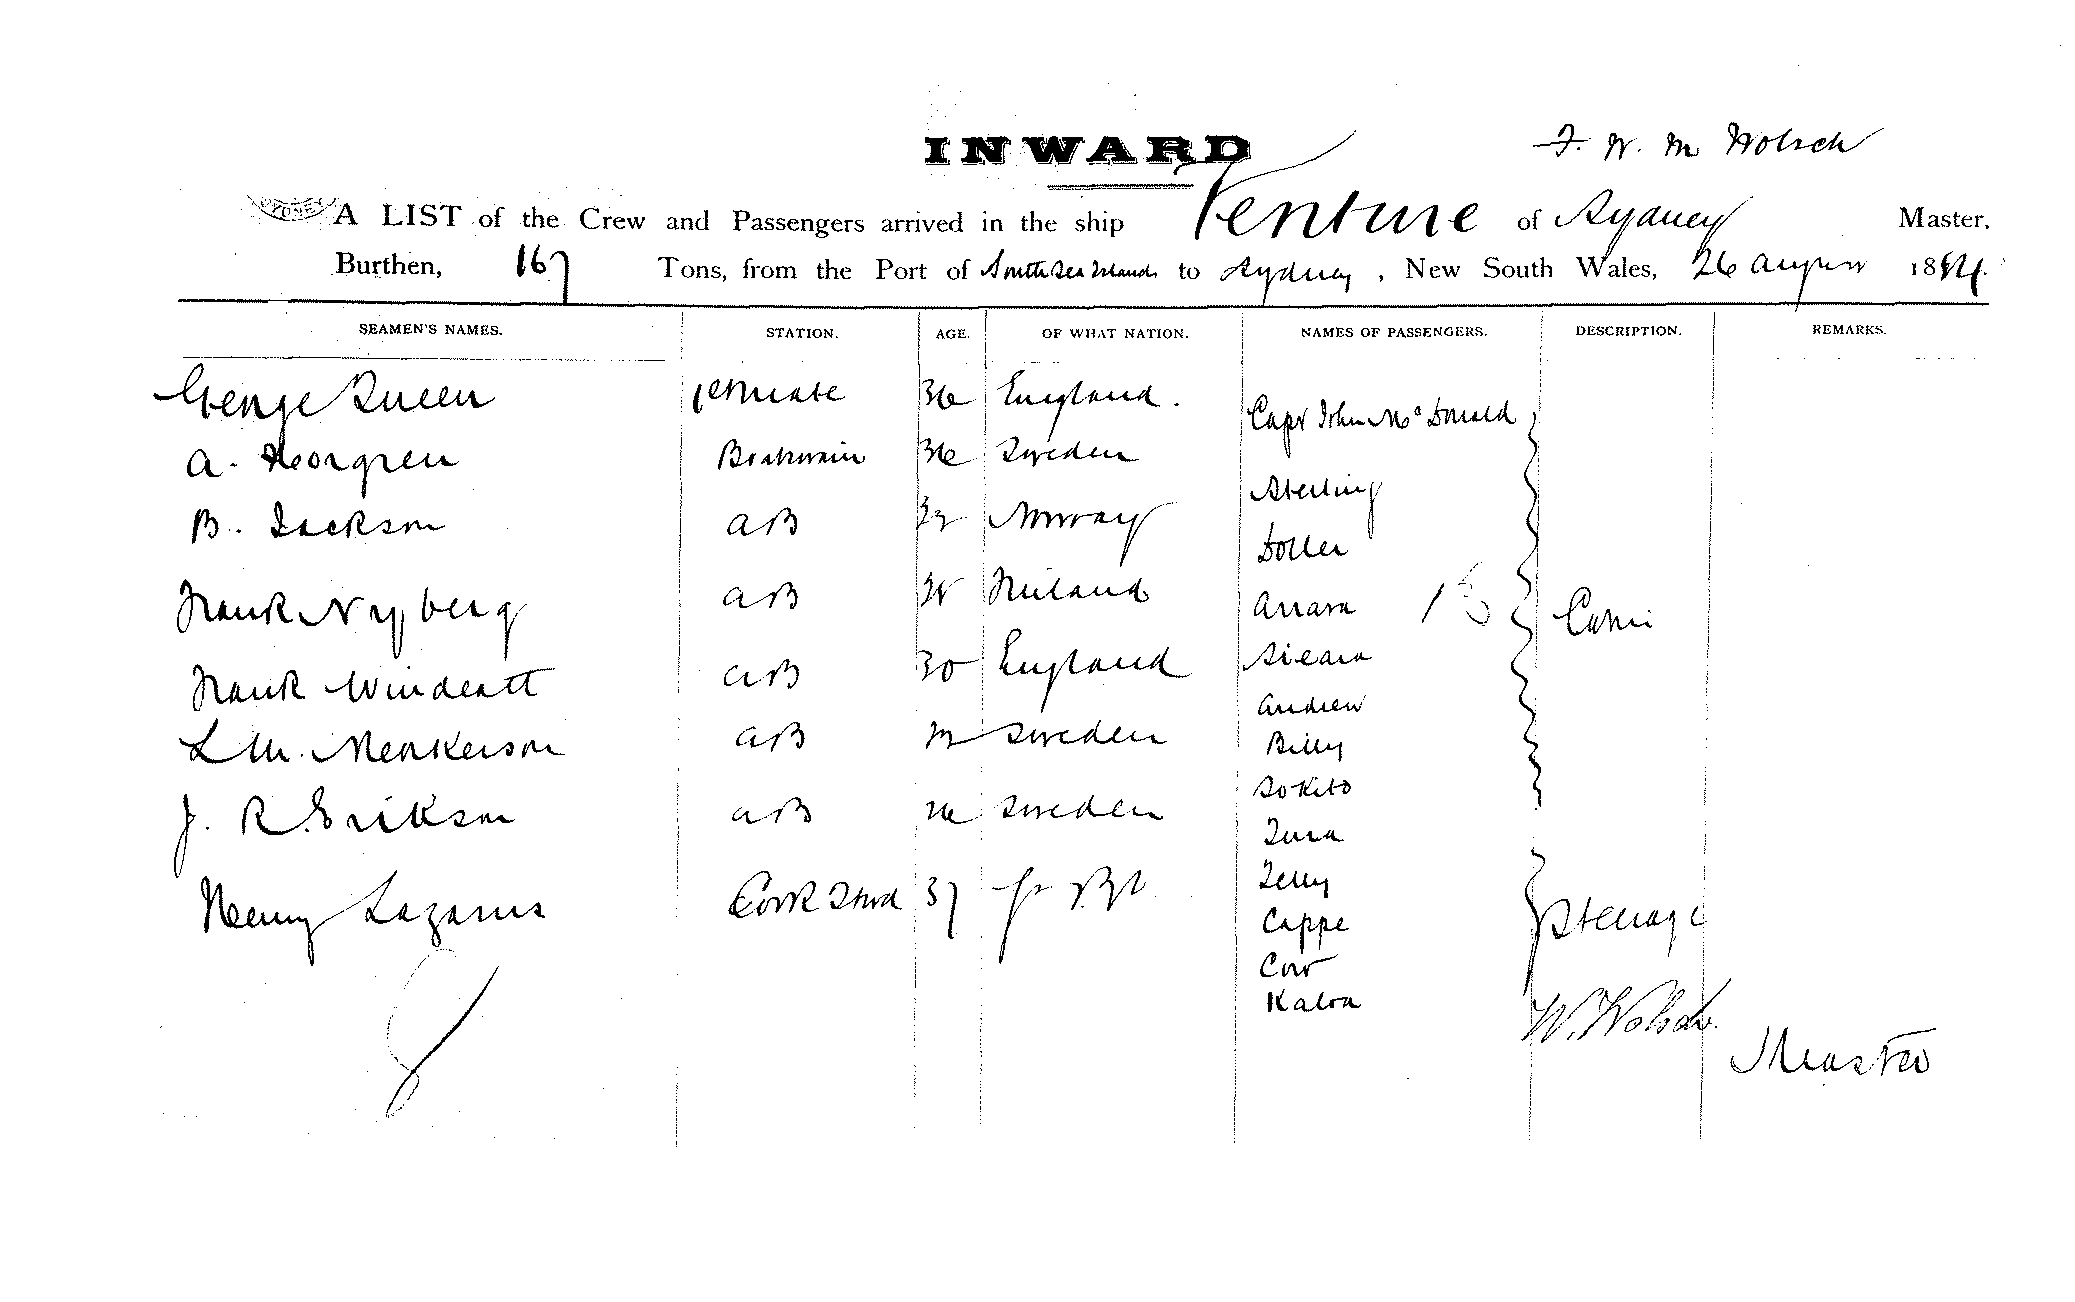 INWARD
F. W. M Wolsch
SYDNEY
A LIST of the Crew and Passengers arrived in the ship Venture of Sydney Master,
Burthen, 167 Tons, from the Port of South Sea Islands to Sydney, New South Wales, 26 August 1884.
SEAMEN'S NAMES. STATION. AGE. OF WHAT NATION. NAMES OF PASSENGERS. DESCRIPTION. REMARKS.
George Queen 1st Mate 36 England.
Capt John McDonald
A. Norgren Boatswain 36 Sweden
Sterling
B. Jackson AB Norway
Doller
Frank Nyberg AB Finland
Arrara
Cabin
Frank Windeatt AB 30 England
Sieara
Andrew
L M. Menkerson AB Sweden
Billy
Sokito
J. R. Erikson AB Sweden
Tura
Jelly
Henry Lazarus Cook Stwd 37
Cappe
Steerage
Cow
Kaloa
W. Wolsch
Master